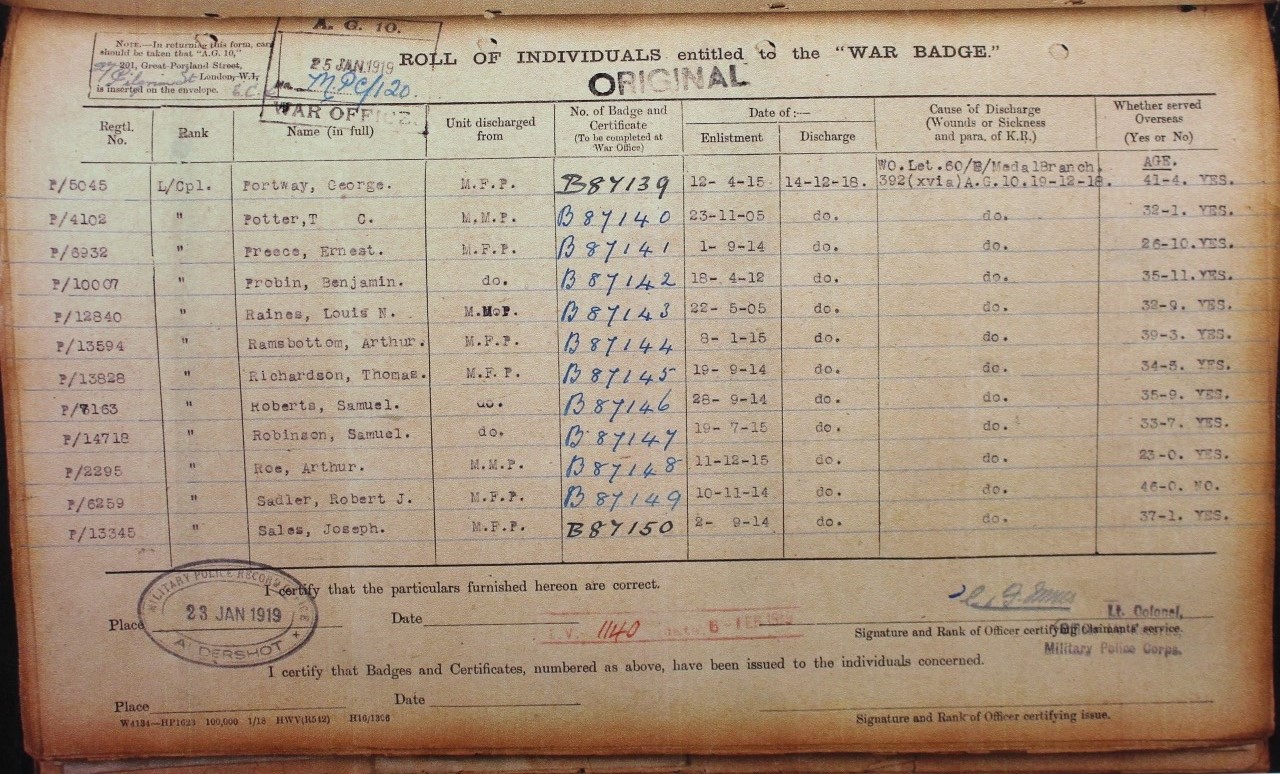 NOTE.—In returning this form, care
should be taken that "A.G. 10,"
201, Great Portland Street,
Pilgrim St London, W.1,
is inserted on the envelope. E.C.
A. G. 10.
25 JAN 1919
No. MPC/120.
WAR OFFICE.
ROLL OF INDIVIDUALS entitled to the "WAR BADGE."
ORIGINAL
Regtl. No. Rank Name (in full) Unit discharged from No. of Badge and Certificate (To be completed at War Office) Date of :— Enlistment Discharge Cause of Discharge (Wounds or Sickness and para. of K.R.) Whether served Overseas (Yes or No)
WO. Let. 60/B/MedalBranch. AGE.
P/5045 L/Cpl. Portway, George. M.F.P. B87139 12- 4-15 14-12-18. 392(xvia)A.G.10.19-12-18. 41-4. YES.
P/4102 " Potter,T C. M.M.P. B87140 23-11-05 do. do. 32-1. YES.
P/6932 " Preece, Ernest. M.F.P. B87141 1- 9-14 do. do. 26-10.YES.
P/10007 " Probin, Benjamin. do. B87142 18- 4-12 do. do. 35-11.YES.
P/12840 " Raines, Louis N. M.M.P. B87143 22- 5-05 do. do. 32-9. YES.
P/13594 " Ramsbottom, Arthur. M.F.P. B87144 8- 1-15 do. do. 39-3. YES.
P/13828 " Richardson, Thomas. M.F.P. B87145 19- 9-14 do. do. 34-5. YES.
P/ " Roberts, Samuel. do. B87146 28- 9-14 do. do. 35-9. YES.
P/14718 " Robinson, Samuel. do. B87147 19- 7-15 do. do. 33-7. YES.
P/2295 " Roe, Arthur. M.M.P. B87148 11-12-15 do. do. 23-0. YES.
P/6259 " Sadler, Robert J. M.F.P. B87149 10-11-14 do. do. 46-0. NO.
P/13345 " Sales, Joseph. M.F.P. B87150 2- 9-14 do. do. 37-1. YES.
I certify that the particulars furnished hereon are correct.
MILITARY POLICE RECORD OFFICE
23 JAN 1919
ALDERSHOT
Place Date
I.V. 1140 date 6 - FEB 1919
Lt. Colonel,
Signature and Rank of Officer certifying Claimants' service.
Military Police Corps.
I certify that Badges and Certificates, numbered as above, have been issued to the individuals concerned.
Place Date
W4134—HP1623 100,000 1/18 HWV(R542) H16/1306
Signature and Rank of Officer certifying issue.